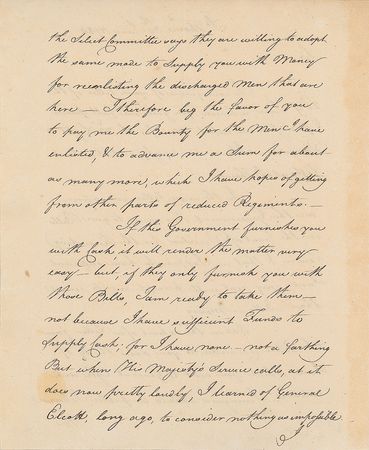 the Select Committee says they are willing to adopt
the same mode to Supply you with Money
for reenlisting the discharged Men that are
here — I therefore beg the favor of you
to pay me the Bounty for the Men I have
enlisted, & to advance me a Sum for about
as many more, which I have hopes of getting
from other parts of reduced Regiments. —
If this Government furnishes you
with Cash it will render the matter very
easy — but, if they only furnish you with
those Bills, I am ready to take them —
not because I have sufficient Funds to
supply Cash; for I have none — not a farthing
But when His Majesty's Service calls, as it
does now pretty loudly, I learned of General
Eliott, long ago, to consider nothing as impossible